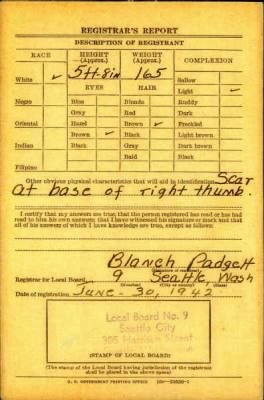 REGISTRAR'S REPORT
DESCRIPTION OF REGISTRANT
RACE HEIGHT (Approx.) WEIGHT (Approx.) COMPLEXION
White ✓ 5ft-8in 165 Sallow
EYES HAIR Light ✓
Negro Blue Blonde Ruddy
Gray Red Dark
Oriental Hazel Brown ✓ Freckled
Brown ✓ Black Light brown
Indian Black Gray Dark brown
Bald Black
Filipino
Other obvious physical characteristics that will aid in identification Scar
at base of right thumb.
I certify that my answers are true; that the person registered has read or has had
read to him his own answers; that I have witnessed his signature or mark and that
all of his answers of which I have knowledge are true, except as follows:
Blanch Padgett
(Signature of registrar)
Registrar for Local Board 9 Seattle, Wash
(Number) (City or county) (State)
Date of registration June-30, 1942
Local Board No. 9
Seattle City
Harrison Street
(STAMP OF LOCAL BOARD)
(The stamp of the Local Board having jurisdiction of the registrant
shall be placed in the above space)
U. S. GOVERNMENT PRINTING OFFICE